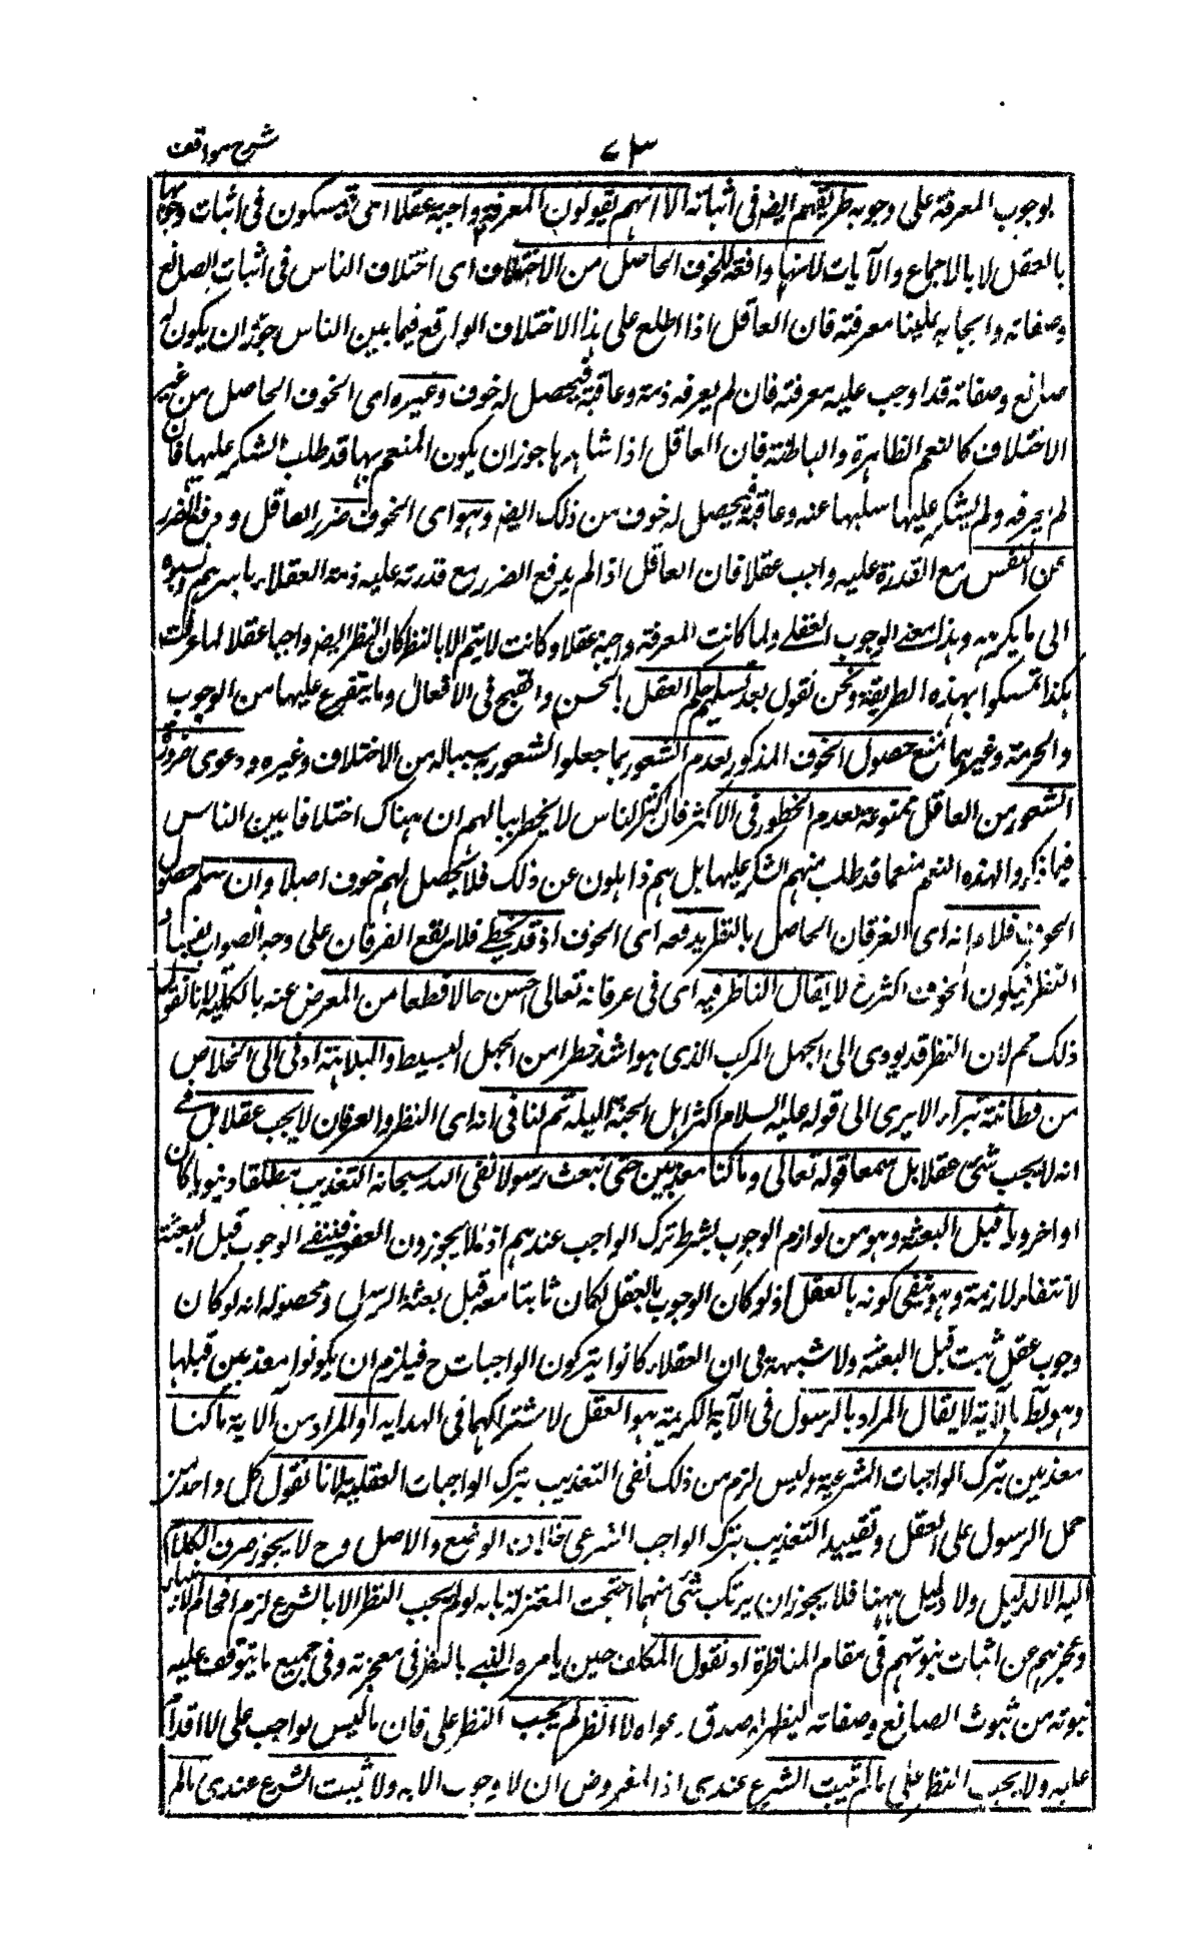 شرح مواقف
۷۳
بوجوب المعرفة على وجوبه طريقهم ايضا فى اثباته الا انهم يقولون المعرفة واجبة عقلا اى يتمسكون فى اثبات وجوبها
بالعقل لا بالاجماع والآيات لانها دافعة للخوف الحاصل من الاختلاف اى اختلاف الناس فى اثبات الصانع
وصفاته وايجابه علينا معرفته فان العاقل اذا اطلع على هذا الاختلاف الواقع فيما بين الناس جوّز ان يكون له
صانع وصفاته قد اوجب عليه معرفته فان لم يعرفه ذمه وعاقبه فيحصل له خوف وغيره اى الخوف الحاصل من غير
الاختلاف كالنعم الظاهرة والباطنة فان العاقل اذا شاهدها جوز ان يكون المنعم بها قد طلب الشكر عليها فان
لم يعرفه ولم يشكر عليها سلبها عنه وعاقبه فيحصل له خوف من ذلك ايضا وهو اى الخوف ضرر العاقل ودفع الضرر
عن النفس مع القدرة عليه واجب عقلا فان العاقل اذا لم يدفع الضرر مع قدرته عليه ذمه العقلاء باسرهم ونسبوه
الى ما يكرهه وهذا معنى الوجوب العقلى ولما كانت المعرفة واجبة عقلا وكانت لا يتم الا بالنظر كان النظر ايضا واجبا عقلا لما عرفت
هكذا تمسكوا بهذه الطريقة ونحن نقول بعد تسليم حكم العقل بالحسن والقبح فى الافعال وما يتفرع عليها من الوجوب
والحرمة وغيرهما نمنع حصول الخوف المذكور لعدم الشعور بما جعلوا الشعور به سببا له من الاختلاف وغيره ودعوى ضرورة
الشعور من العاقل ممنوعة لعدم الخطور فى الاكثر فان اكثر الناس لا يخطر ببالهم ان هناك اختلافا بين الناس
فيما ذكر وان لهذه النعم منعما قد طلب منهم الشكر عليها بل هم ذاهلون عن ذلك فلا يحصل لهم خوف اصلا وان سلم حصول
الخوف فلا م انه اى العرفان الحاصل بالنظر يدفعه اى الخوف اذ قد يخطئ فلا يقع العرفان على وجه الصواب لفساد
النظر فيكون الخوف اكثر ح لا يقال الناظر فيه اى فى عرفانه تعالى احسن حالا قطعا من المعرض عنه بالكلية لانا نقول
ذلك مم لان النظر قد يودى الى الجهل المركب الذى هو اشد خطرا من الجهل البسيط والبلاهة ادنى الى الخلاص
من فطانة تبراء الا يرى الى قوله عليه السلام اكثر اهل الجنة البله ثم لنا فى انه اى النظر والعرفان لا يجب عقلا بل فى
انه لا يجب شئ عقلا بل سمعا قوله تعالى وما كنا معذبين حتى نبعث رسولا نفى الله سبحانه التعذيب مطلقا دنيويا كان
او اخرويا قبل البعثة وهو من لوازم الوجوب بشرط ترك الواجب عندهم اذ لا يجوزون العفو فينتفى الوجوب قبل البعثة
لانتفاء لازمه وهو ينفى كونه بالعقل اذ لو كان الوجوب بالعقل لكان ثابتا معه قبل بعثة الرسل ومحصوله انه لو كان
وجوب عقلى ثبت قبل البعثة ولا شبهة فى ان العقلاء كانوا يتركون الواجبات ح فيلزم ان يكونوا معذبين قبلها
وهو بط بالآية لا يقال المراد بالرسول فى الآية الكريمة هو العقل لاشتراكهما فى الهداية او المراد من الآية ما كنا
معذبين بترك الواجبات الشرعية وليس لزم من ذلك نفى التعذيب بترك الواجبات العقلية لانا نقول كل واحد من
حمل الرسول على العقل وتقييد التعذيب بترك الواجب الشرعى خلاف الوضع والاصل و ح لا يجوز صرف الكلام
اليه الا لدليل ولا دليل ههنا فلا يجوز ان يرتكب شئ منهما احتجت المعتزلة بانه لو لم يجب النظر الا بالشرع لزم افحام الانبياء
وعجزهم عن اثبات نبوتهم فى مقام المناظرة اذ نقول المكلف حين يامره النبى بالنظر فى معجزته وفى جميع ما يتوقف عليه
نبوته من ثبوت الصانع وصفاته ليظهر له صدق دعواه لا انظر لم يجب النظر على فان ما ليس بواجب على لا اقدام
عليه ولا يجب النظر على ما لم يثبت الشرع عندى اذ المفروض ان لا وجوب الا به ولا ثبت الشرع عندى ما لم